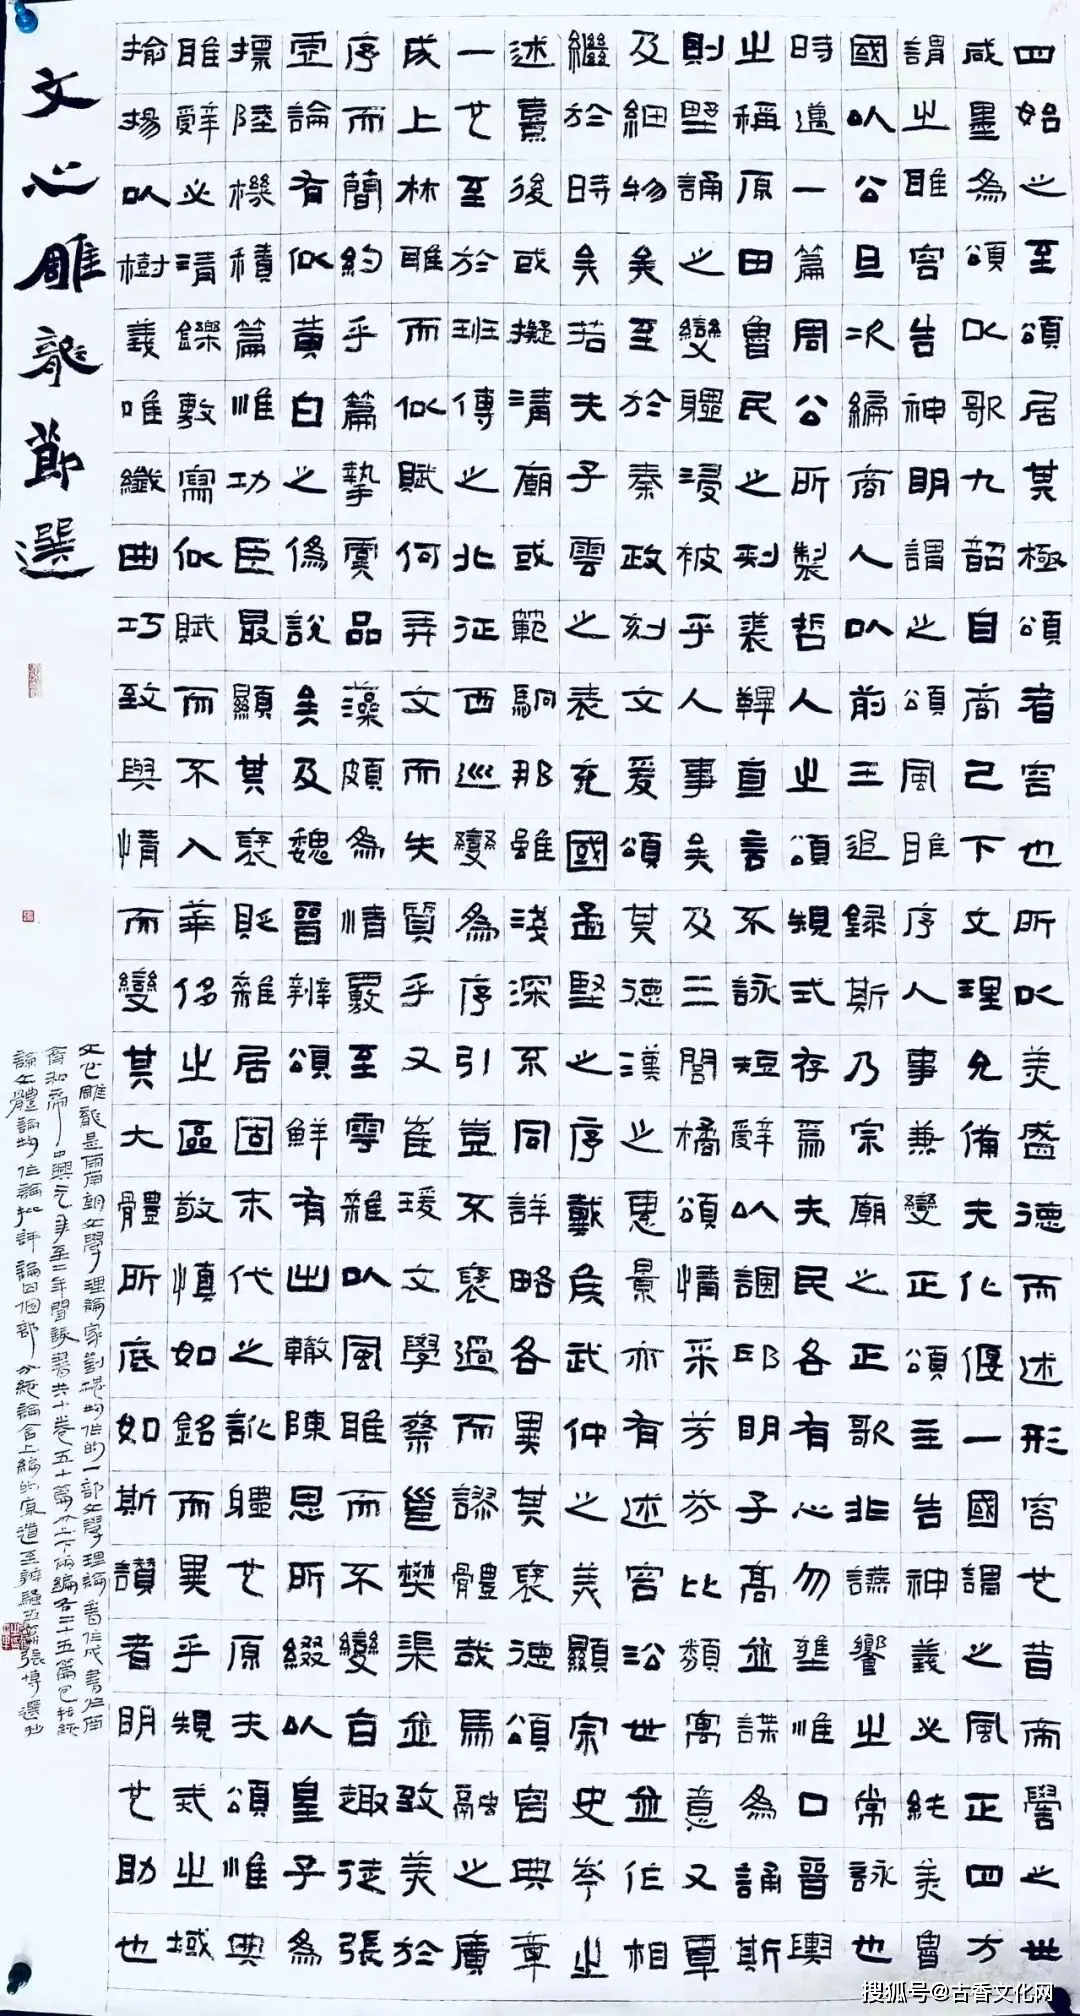 四始之至頌居其極頌者容也所以美盛德而述形容也昔帝嚳之世
咸墨為頌以歌九韶自商已下文理允備夫化偃一國謂之風正四方
謂之雅容告神明謂之頌風雅序人事兼變正頌主告神義必純美魯
國以公旦次編商人以前王追錄斯乃宗廟之正歌非讌饗之常詠也
時邁一篇周公所製哲人之頌規式存焉夫民各有心勿壅惟口晉輿
之稱原田魯民之刺裘鞸直言不詠短辭以諷邱明子高並諜為誦斯
則野誦之變軆浸被乎人事矣及三閭橘頌情采芳芬比類寓意又覃
及細物矣至於秦政刻文爰頌其德漢之惠景亦有述容沿世並作相
繼於時矣若夫子雲之表充國孟堅之序戴侯武仲之美顯宗史岑之
述熹後或擬清廟或範駉那雖淺深不同詳略各異其褒德頌容典章
一也至於班傅之北征西巡變為序引豈不褒過而謬體哉馬融之廣
成上林雅而似賦何弄文而失質乎又崔瑗文學蔡邕樊渠並致美於
序而簡約乎篇摯虞品藻頗為情覈至雲雜以風雅而不變旨趣徒張
虛論有似黃白之偽說矣及魏晉辨頌鮮有出轍陳思所綴以皇子為
摽陸機積篇惟功臣最顯其褒貶雜居固末代之訛軆也原夫頌惟典
雅辭必清鑠敷寫似賦而不入華侈之區敬慎如銘而異乎規式之域
揄揚以樹義唯纖曲巧致與情而變其大體所底如斯讚者明也助也
文心雕龍節選
文心雕龍是南朝文學理論家劉勰作的一部文學理論著作成書於南
齊和帝中興元年至二年間該書共十卷五十篇分上下兩編各二十五篇包括總
論文體論創作論批評論四個部分總論含上編的原道至辨騷五篇張博選抄
搜狐号@古香文化网